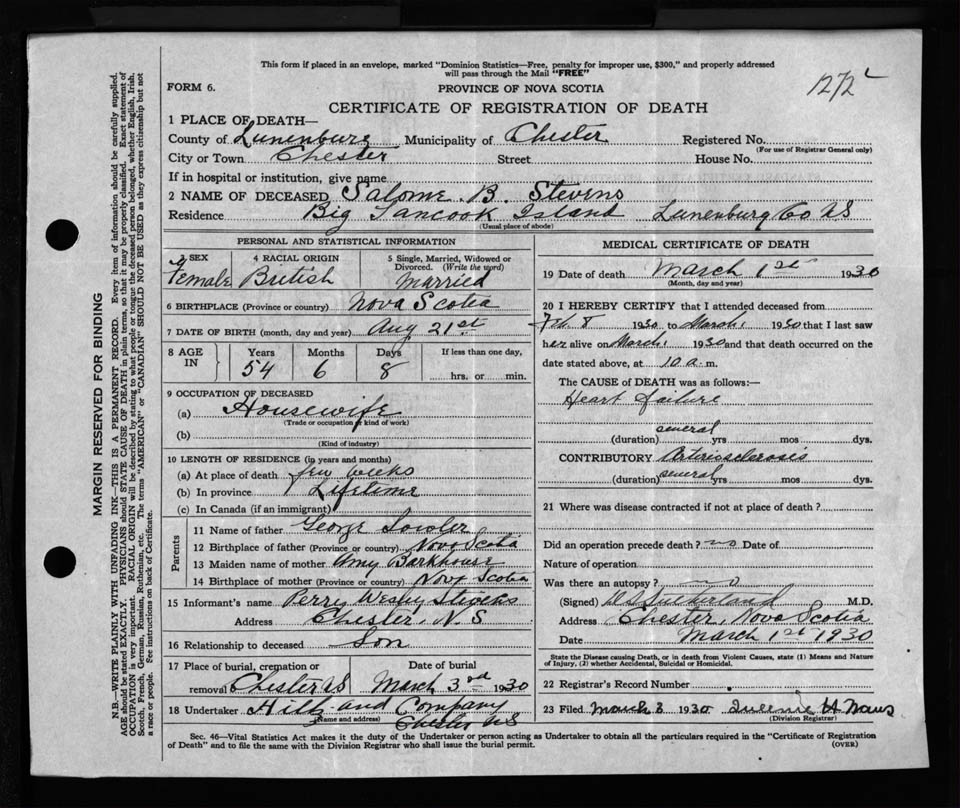 This form if placed in an envelope, marked "Dominion Statistics—Free, penalty for improper use, $300," and properly addressed
will pass through the Mail "FREE"
1272
FORM 6.
PROVINCE OF NOVA SCOTIA
CERTIFICATE OF REGISTRATION OF DEATH
1 PLACE OF DEATH—
County of Lunenburg Municipality of Chester Registered No.
(For use of Registrar General only)
City or Town Chester Street House No.
If in hospital or institution, give name
2 NAME OF DECEASED Salome. B. Stevens
Residence Big Tancook Island Lunenburg Co NS
(Usual place of abode)
PERSONAL AND STATISTICAL INFORMATION
3 SEX 4 RACIAL ORIGIN 5 Single, Married, Widowed or
Divorced. (Write the word)
Female British Married
6 BIRTHPLACE (Province or country) Nova Scotia
7 DATE OF BIRTH (month, day and year) Aug 21st
8 AGE IN Years Months Days If less than one day,
54 6 8 hrs. or min.
9 OCCUPATION OF DECEASED
(a) Housewife
(Trade or occupation or kind of work)
(b)
(Kind of industry)
10 LENGTH OF RESIDENCE (in years and months)
(a) At place of death few weeks
(b) In province Lifetime
(c) In Canada (if an immigrant)
Parents
11 Name of father George
12 Birthplace of father (Province or country) Nova Scotia
13 Maiden name of mother Amy Barkhouse
14 Birthplace of mother (Province or country) Nova Scotia
15 Informant's name Perry Wesley Stevens
Address Chester, N.S
16 Relationship to deceased Son
17 Place of burial, cremation or Date of burial
removal Chester NS March 3rd 1930
18 Undertaker Hilts and Company
(Name and address) Chester NS
MEDICAL CERTIFICATE OF DEATH
19 Date of death March 1st 1930
(Month, day and year)
20 I HEREBY CERTIFY that I attended deceased from
Feb 8 1930 to March 1 1930 that I last saw
her alive on March 1 1930 and that death occurred on the
date stated above, at 10 a. m.
The CAUSE of DEATH was as follows:—
Heart failure
(duration) several yrs mos dys.
CONTRIBUTORY Arteriosclerosis
(duration) several yrs mos dys.
21 Where was disease contracted if not at place of death?
Did an operation precede death? no Date of
Nature of operation
Was there an autopsy? no
(Signed) Sutherland M.D.
Address Chester, Nova Scotia
Date March 1st 1930
State the Disease causing Death, or in death from Violent Causes, state (1) Means and Nature
of Injury, (2) whether Accidental, Suicidal or Homicidal.
22 Registrar's Record Number
23 Filed March 3 1930
(Division Registrar)
Sec. 46—Vital Statistics Act makes it the duty of the Undertaker or person acting as Undertaker to obtain all the particulars required in the "Certificate of Registration
of Death" and to file the same with the Division Registrar who shall issue the burial permit.
(OVER)
MARGIN RESERVED FOR BINDING
N.B.—WRITE PLAINLY WITH UNFADING INK—THIS IS A PERMANENT RECORD. Every item of information should be carefully supplied.
AGE should be stated EXACTLY. PHYSICIANS should STATE CAUSE OF DEATH in plain terms, so that it may be properly classified. Exact statement of
OCCUPATION is very important. RACIAL ORIGIN will be described by stating to what people or tongue the deceased person belonged, whether English, Irish,
Scotch, French, German, Russian, Ruthenian, etc. The terms "AMERICAN" or "CANADIAN" SHOULD NOT BE USED as they express citizenship but not
a race or people. See instructions on back of Certificate.